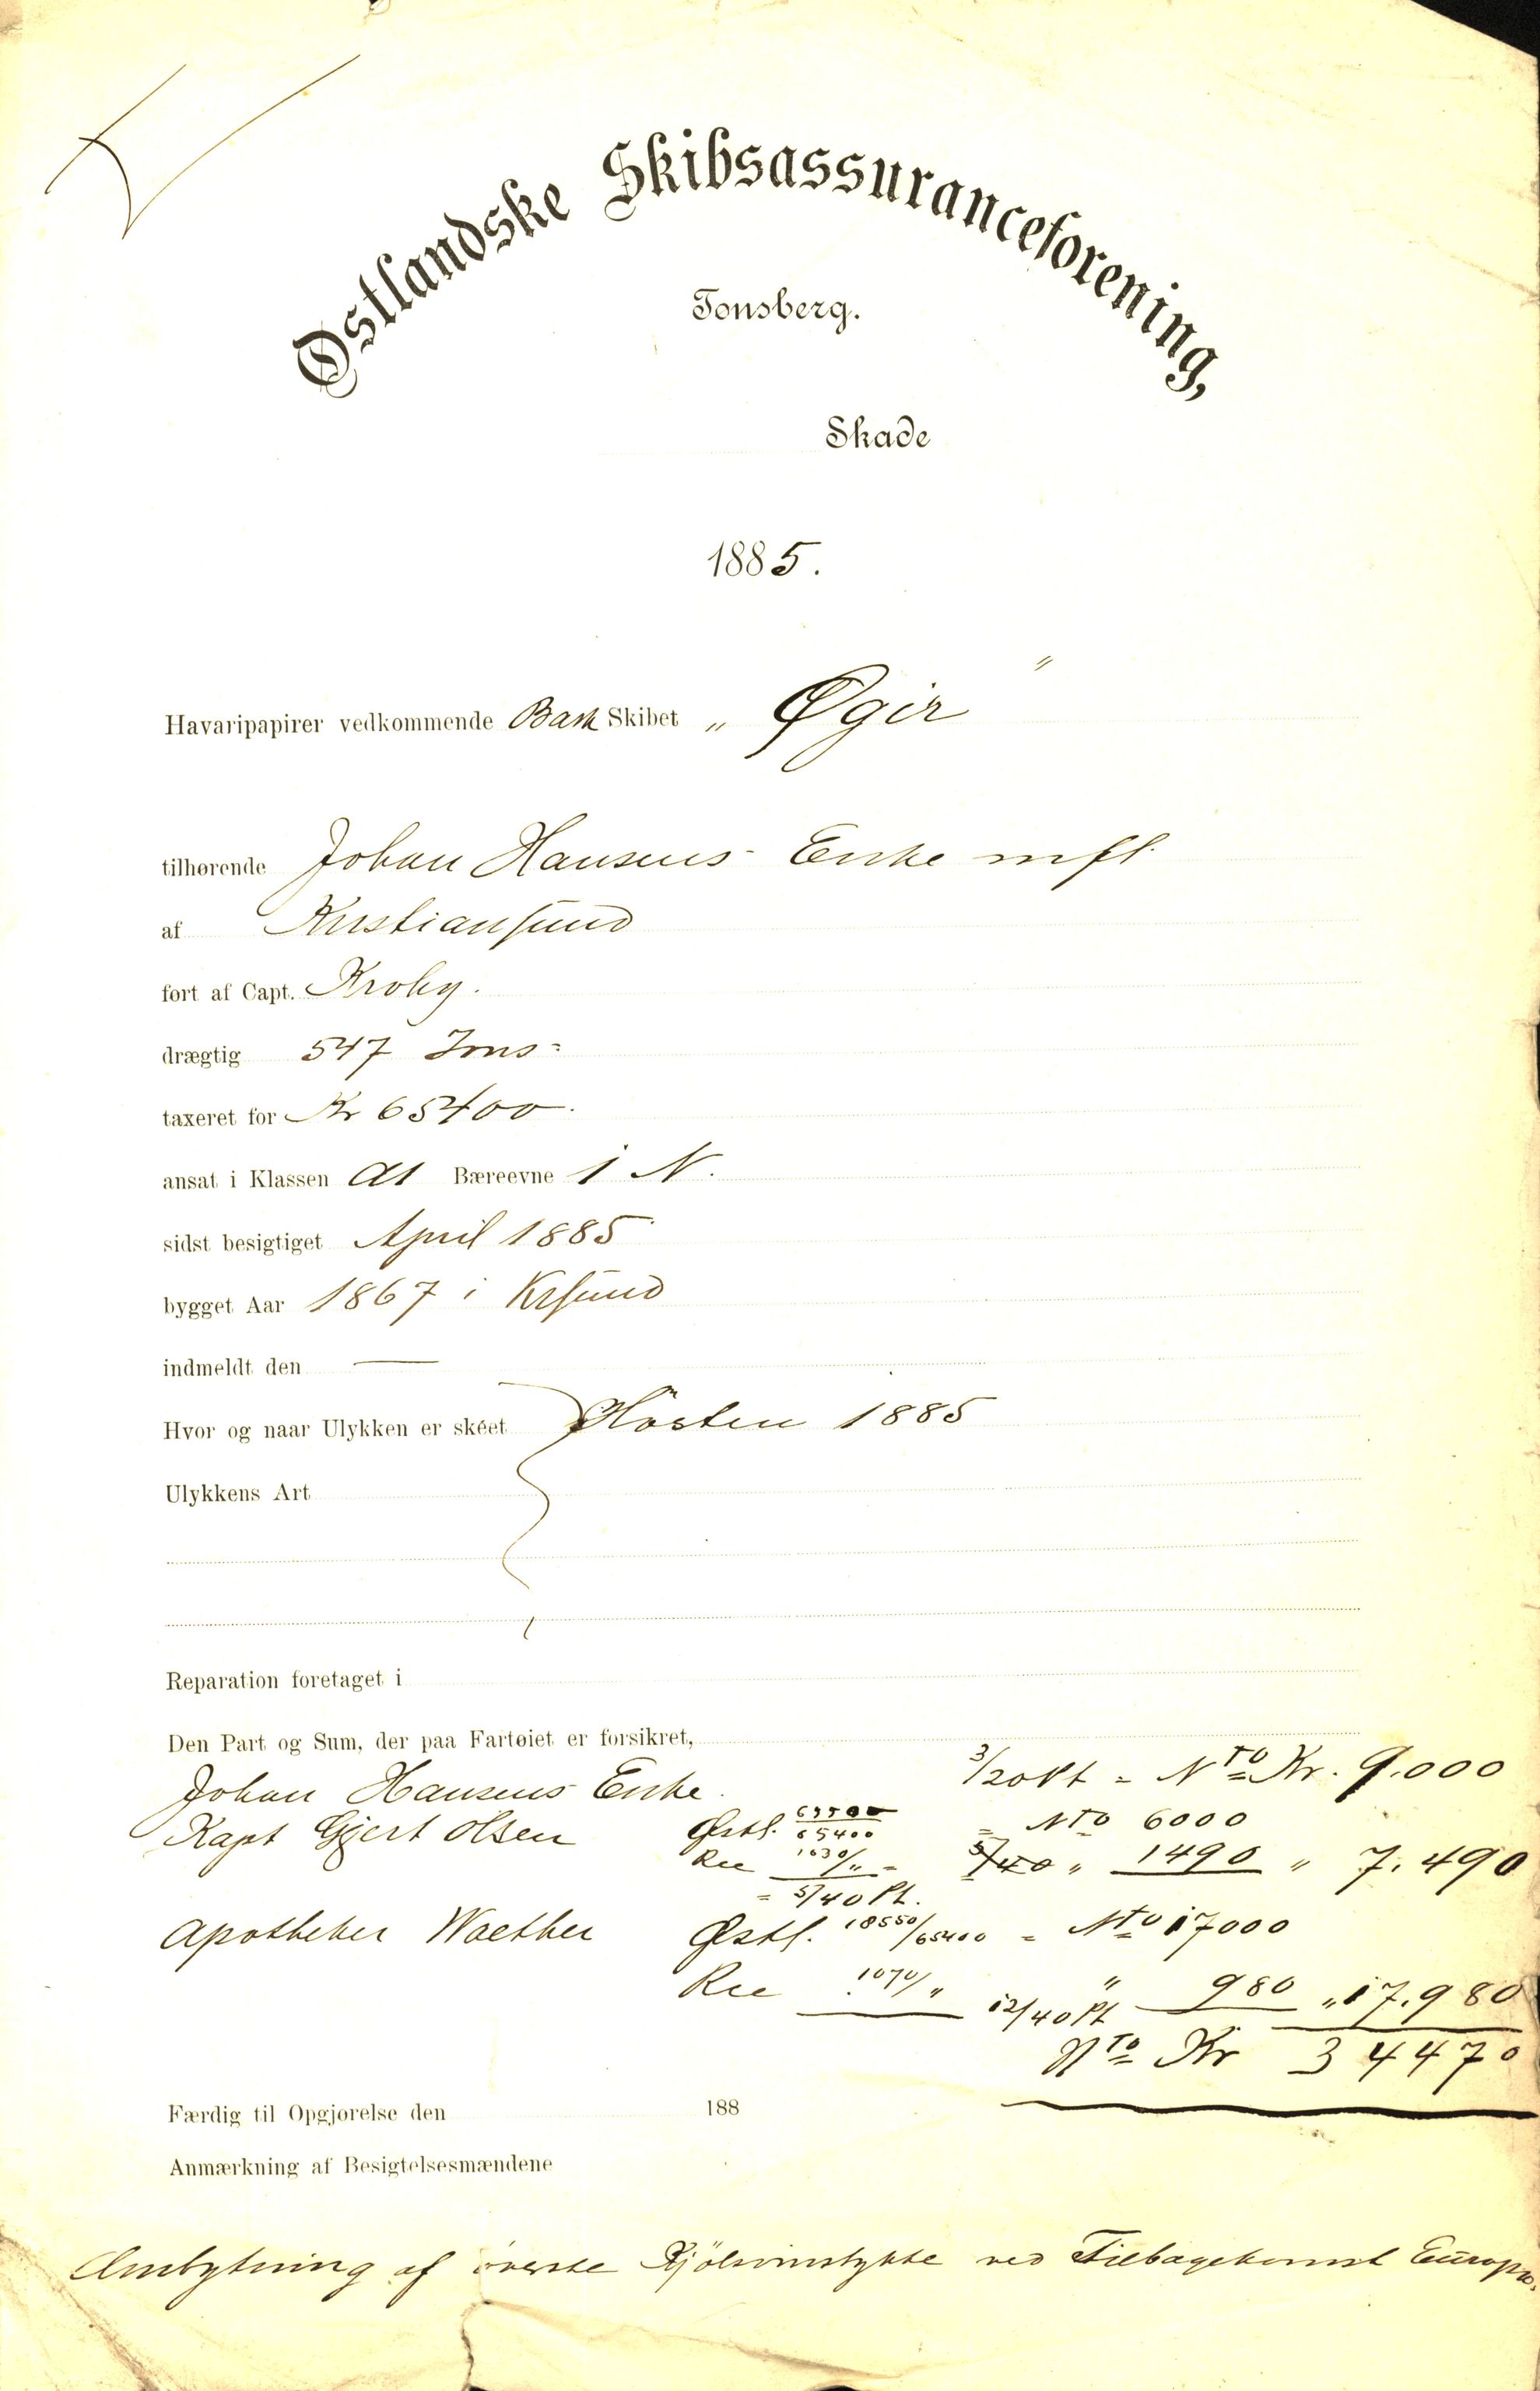 Østlandske Skibsassuranceforening,
Tønsberg.
Skade
1885.
Havaripapirer vedkommende Bark Skibet „ Øgir "
tilhørende Johan Hansens Enke mfl
af Kristiansund
ført af Capt. Kroby.
drægtig 547 Tons
taxeret for Kr 65400.
ansat i Klassen A1 Bæreevne 1 N.
sidst besigtiget April 1885
bygget Aar 1867 i Krsund
indmeldt den —
Hvor og naar Ulykken er skéet Høsten 1885
Ulykkens Art
Reparation foretaget i
Den Part og Sum, der paa Fartøiet er forsikret,
Johan Hansens Enke 3/20 Pt = Nto Kr. 9.000
Kapt Gjert Olsen Østl. 65400 = Nto 6000
Ree 1630/„ = 5/40 „ 1490 „ 7.490
= 5/40 Pt.
Apotheker Waether Østl. 18550/65400 = Nto 17000
Ree 1070/„ 12/40 Pt " 980 „ 17.980
Nto Kr 34470
Færdig til Opgjørelse den 188
Anmærkning af Besigtelsesmændene
Ombytning af øverste Kjølsvinstykke ved Tilbagekomst Europa.